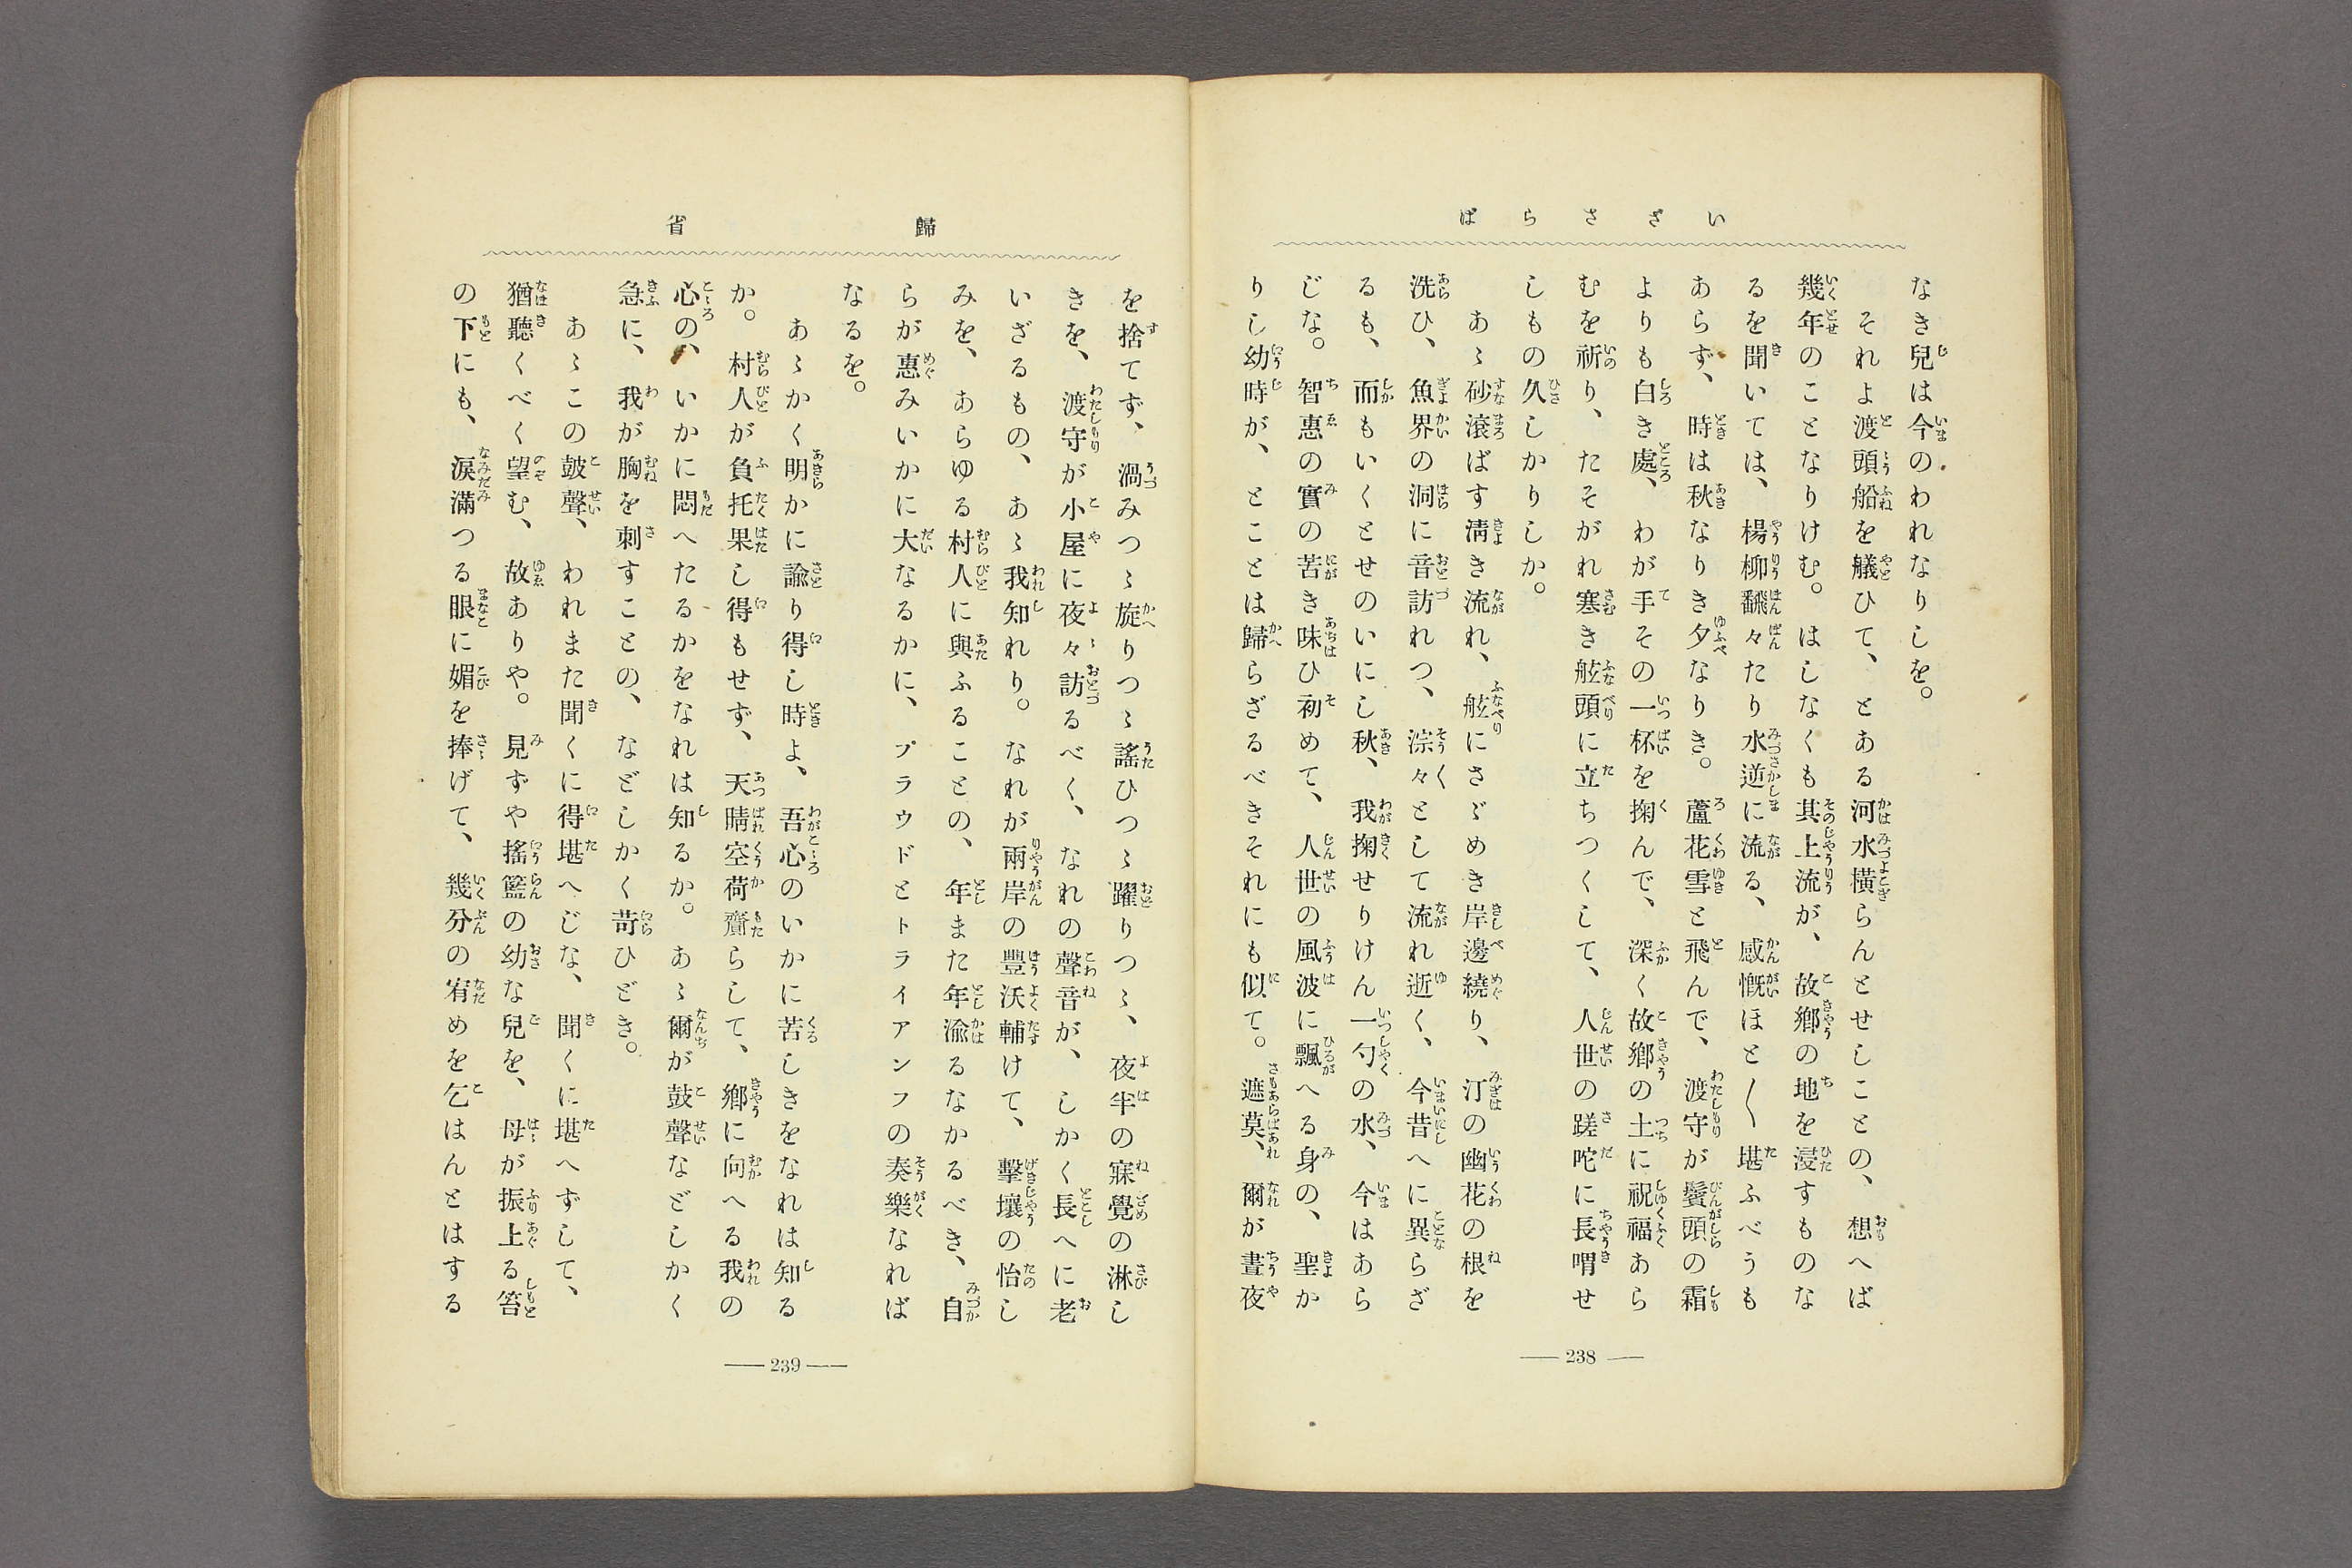 いざさらば
なき兒は今のわれなりしを。
それよ渡頭船を艤ひて、とある河水横らんとせしことの、想へば
幾年のことなりけむ。はしなくも其上流が、故鄕の地を浸すものな
るを聞いては、楊柳飜々たり水逆に流る、感慨ほと〱堪ふべうも
あらず、時は秋なりき夕なりき。蘆花雪と飛んで、渡守が鬢頭の霜
よりも白き處、わが手その一杯を掬んで、深く故鄕の土に祝福あら
むを祈り、たそがれ寒き舷頭に立ちつくして、人世の蹉咜に長喟せ
しもの久しかりしか。
あゝ砂滾ばす淸き流れ、舷にさゞめき岸邊繞り、汀の幽花の根を
洗ひ、魚界の洞に音訪れつ、淙々として流れ逝く、今昔へに異らざ
るも、而もいくとせのいにし秋、我掬せりけん一勺の水、今はあら
じな。智惠の實の苦き味ひ初めて、人世の風波に飄へる身の、聖か
りし幼時が、とことは歸らざるべきそれにも似て。遮莫、爾が晝夜
238
歸省
を捨てず、渦みつゝ旋りつゝ謠ひつゝ躍りつゝ、夜半の寐覺の淋し
きを、渡守が小屋に夜々訪るべく、なれの聲音が、しかく長へに老
いざるもの、あゝ我知れり。なれが兩岸の豐沃輔けて、擊壤の怡し
みを、あらゆる村人に與ふることの、年また年渝るなかるべき、自
らが惠みいかに大なるかに、プラウドとトライアンフの奏樂なれば
なるを。
あゝかく明かに諭り得し時よ、吾心のいかに苦しきをなれは知る
か。村人が負托果し得もせず、天晴空荷齎らして、鄕に向へる我の
心の、いかに悶へたるかをなれは知るか。あゝ爾が鼓聲などしかく
急に、我が胸を刺すことの、などしかく苛ひどき。
あゝこの皷聲、われまた聞くに得堪へじな、聞くに堪へずして、
猶聽くべく望む、故ありや。見ずや搖籃の幼な兒を、母が振上る笞
の下にも、淚滿つる眼に媚を捧げて、幾分の宥めを乞はんとはする
239